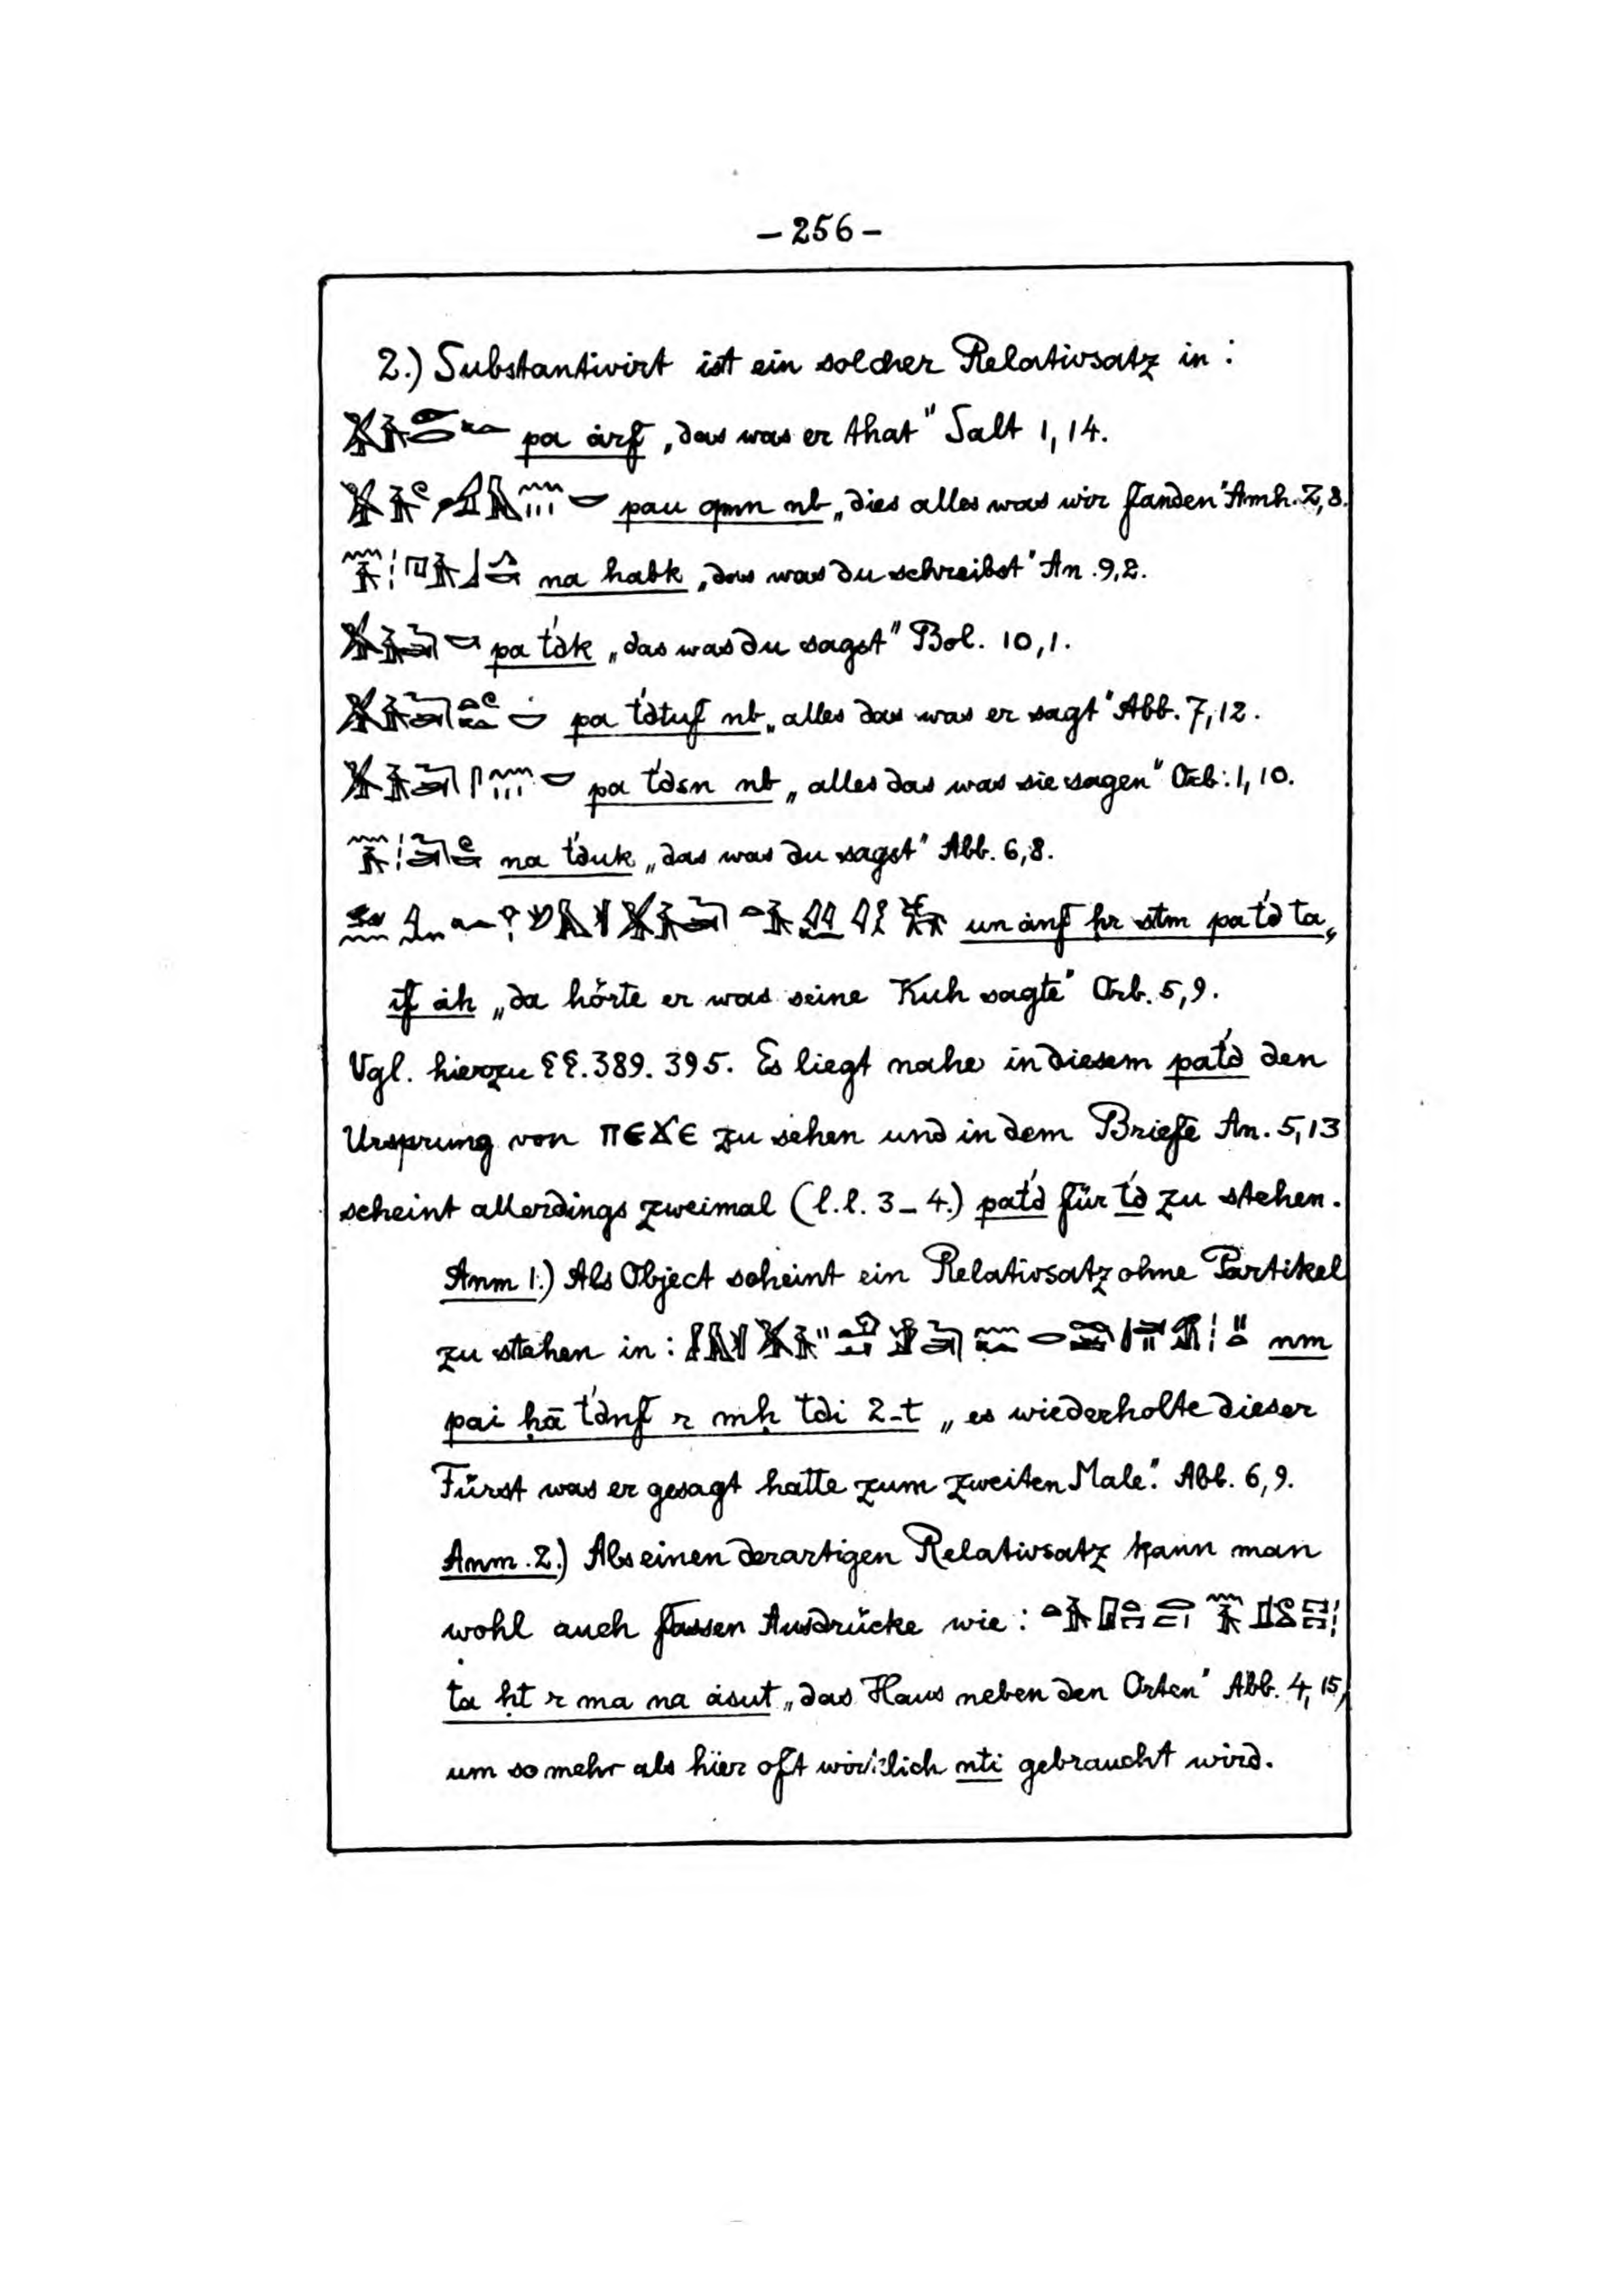 – 256 –
2.) Substantivirt ist ein solcher Relativsatz in :
pa árf „das was er that" Salt 1, 14.
pau qmn nb „dies alles was wir fanden" Amh. 2, 8.
na habk „das was du schreibst" An. 9, 2.
pa t́dk „das was du sagst" Bol. 10, 1.
pa t́dtuf nb „alles das was er sagt" Abb. 7, 12.
pa t́dsn nb „alles das was sie sagen" Orb. 1, 10.
na t́duk „das was du sagst" Abb. 6, 8.
un ánf ḥr stm pa t́d ta„
if áh „da hörte er was seine Kuh sagte" Orb. 5, 9.
Vgl. hierzu §§. 389. 395. Es liegt nahe in diesem pat́d den
Ursprung von ⲡⲉϫⲉ zu sehen und in dem Briefe An. 5, 13
scheint allerdings zweimal (l.l. 3–4.) pat́d für t́d zu stehen.
Anm 1.) Als Object scheint ein Relativsatz ohne Partikel
zu stehen in : nm
pai ḥā t́dnf r mḥ tdi 2-t „es wiederholte dieser
Fürst was er gesagt hatte zum zweiten Male." Abb. 6, 9.
Anm. 2.) Als einen derartigen Relativsatz kann man
wohl auch fassen Ausdrücke wie :
ta ḥt r ma na ásut „das Haus neben den Orten" Abb. 4, 15,
um so mehr als hier oft wirklich nti gebraucht wird.